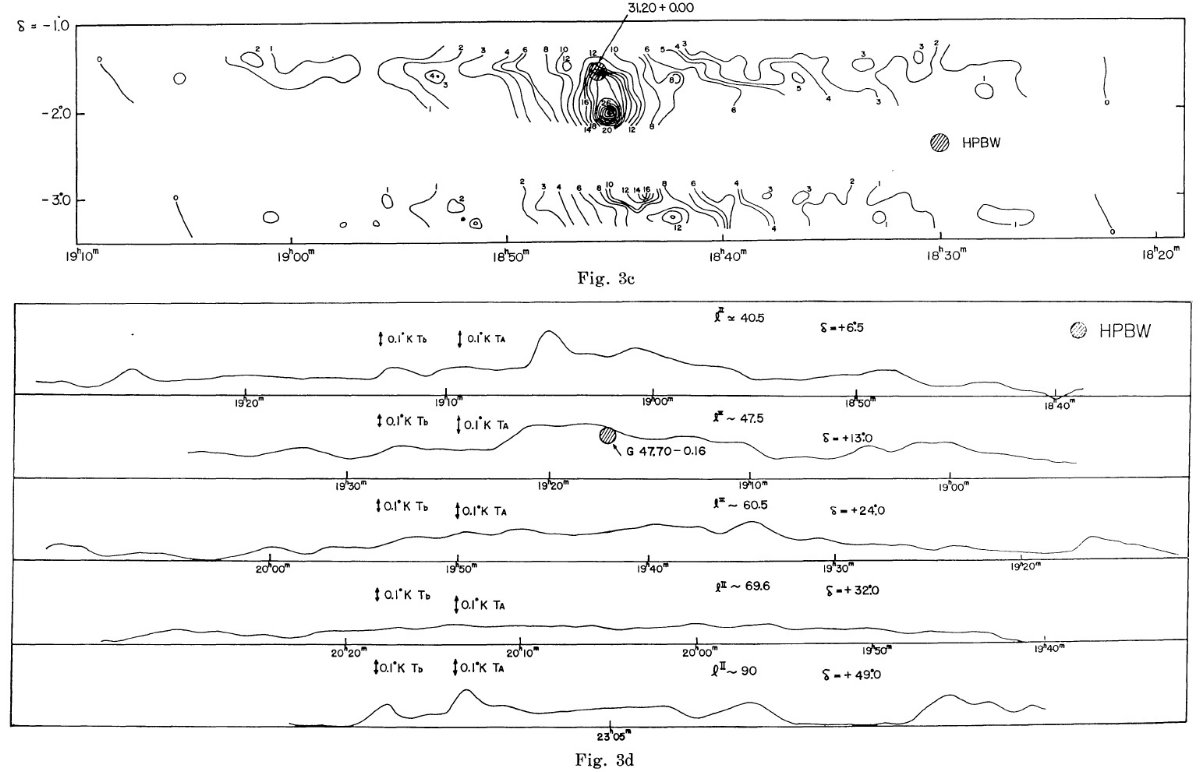 31.20+0.00
δ = -1.°0
2 1 2 3 4 6 8 10 12 10 6 5 4 3 3 3 2
0 12 4 3 8 5 4 3 1
1 16 26 6 0
-2.°0
14 18 20 12 8
HPBW
-3.°0
0 1 1 2 2 3 4 6 6 8 10 12 14 16 8 6 4 3 3 2 1
12 4 1 1 0
19ʰ10ᵐ 19ʰ00ᵐ 18ʰ50ᵐ 18ʰ40ᵐ 18ʰ30ᵐ 18ʰ20ᵐ
Fig. 3c
ℓᴵᴵ ≃ 40.5 δ=+6.°5
0.1°K Tb 0.1°K TA HPBW
19ʰ20ᵐ 19ʰ10ᵐ 19ʰ00ᵐ 18ʰ50ᵐ 18ʰ40ᵐ
ℓᴵᴵ ~ 47.5
0.1°K Tb 0.1°K TA δ=+13.°0
G 47.70-0.16
19ʰ30ᵐ 19ʰ20ᵐ 19ʰ10ᵐ 19ʰ00ᵐ
0.1°K Tb 0.1°K TA ℓᴵᴵ ~ 60.5 δ=+24.°0
20ʰ00ᵐ 19ʰ50ᵐ 19ʰ40ᵐ 19ʰ30ᵐ 19ʰ20ᵐ
0.1°K Tb 0.1°K TA ℓᴵᴵ ~ 69.6 δ=+32.°0
20ʰ20ᵐ 20ʰ10ᵐ 20ʰ00ᵐ 19ʰ50ᵐ 19ʰ40ᵐ
0.1°K Tb 0.1°K TA ℓᴵᴵ ~ 90 δ=+49.°0
23ʰ05ᵐ
Fig. 3d